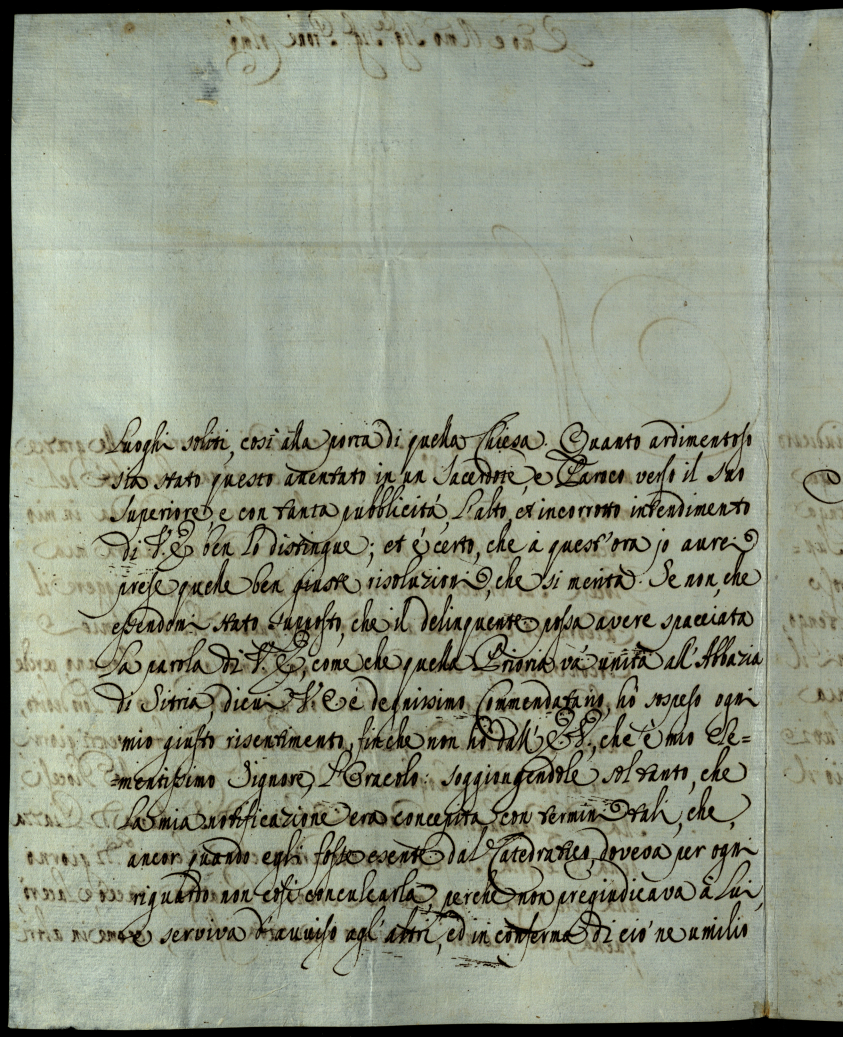 Luoghi soliti, così alla porta di quella Chiesa. Quanto ardimentoso
sia stato questo attentato in un Sacerdote, e Paroco verso il suo
Superiore, e con tanta pubblicità l'alto, et incorrotto intendimento
di V. E. ben lo distingue; et è certo, che à quest'ora jo aurei
prese quelle ben giuste risoluzioni, che si merita. Se non, che
essendomi stato supposto, che il delinquente possa avere spacciata
la parola di V. E., come che quella Prioria và unita all'Abbazia
di Sitria, di cui V. E. è degnissimo Commendatario, hò sospeso ogni
mio giusto risentimento, finche non hò dall'E. V., che è mio Cle=
=mentissimo Signore, l'Oracolo: soggiongendole sol tanto, che
la mia notificazione era concepita con termini tali, che,
ancor quando egli fosse esente dal Catedratico, doveva per ogni
riguardo non così conculcarla, perche non pregiudicava à Lui,
e serviva d'auuiso agl'altri, ed in conferma di ciò ne umilio